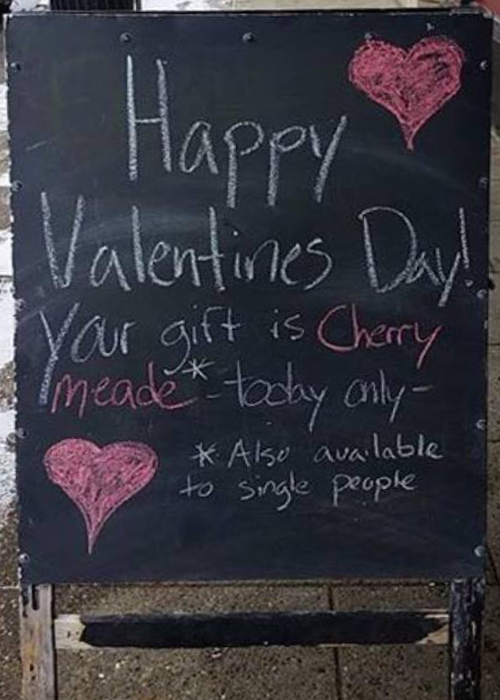 Happy
Valentines Day!
Your gift is Cherry
meade* -today only-
* Also available
to single people